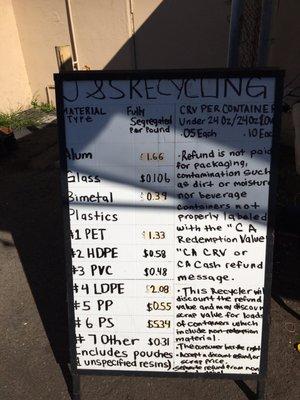 J&S RECYCLING
MATERIAL TYPE
Fully Segregated per Pound
Alum $1.66
Glass $0.106
Bimetal $0.39
Plastics
#1 PET $1.33
#2 HDPE $0.58
#3 PVC $0.48
#4 LDPE $2.08
#5 PP $0.55
#6 PS $5.34
#7 Other $0.31
(Includes pouches & unspecified resins).
CRV PER CONTAINER
Under 24 oz/24oz
.05 Each .10 Each
• Refund is not paid
for packaging,
contamination such
as dirt or moisture
nor beverage
containers not
properly labeled
with the "CA
Redemption Value
"CA CRV or
CA Cash refund
message.
• This Recycler will
discount the refund
value and may discount
scrap value for loads
of containers which
include non-redemption
material.
• The consumer has the right
• Accept a discount refund/or
scrap price.
separate refund from non